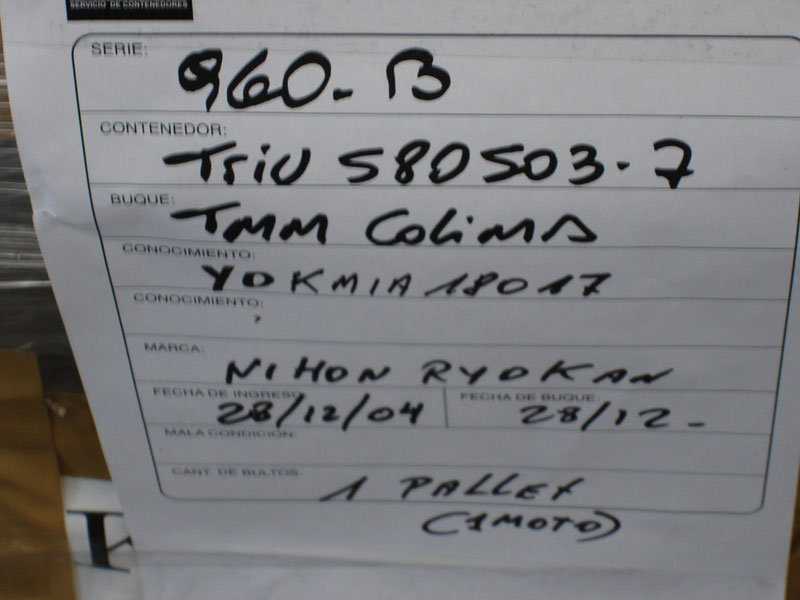 SERVICIO DE CONTENEDORES
SERIE: 960-B
CONTENEDOR: TRIU 580503-7
BUQUE: TMM COLIMA
CONOCIMIENTO: YOKMIA18017
CONOCIMIENTO:
MARCA: NIHON RYOKAN
FECHA DE INGRESO: 28/12/04 FECHA DE BUQUE: 28/12-
MALA CONDICION:
CANT. DE BULTOS: 1 PALLET
(1 MOTO)
K